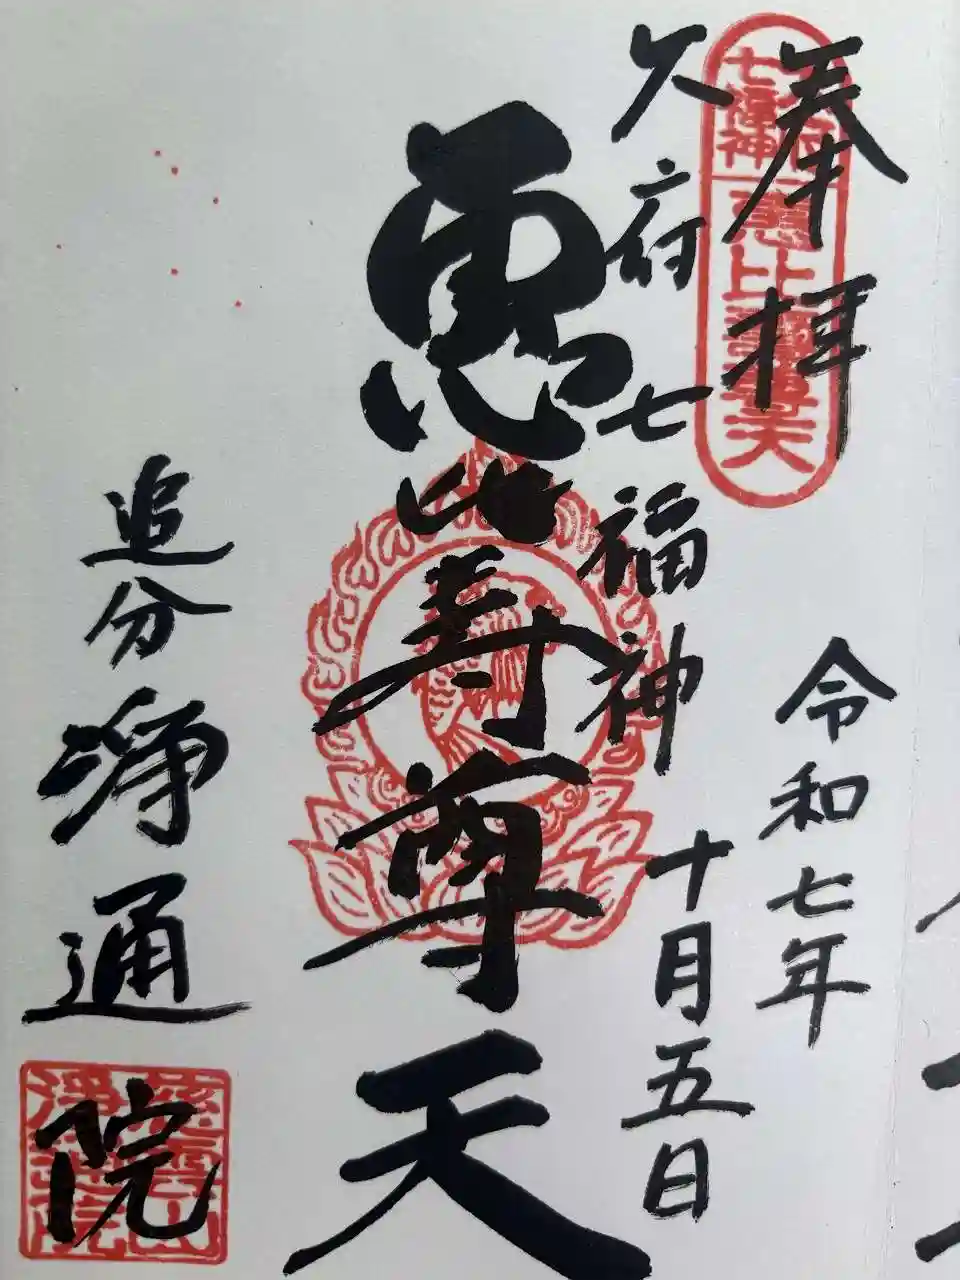 奉拝
令和七年
十月五日
大府七福神
七福神
恵比壽尊天
恵比寿尊天
追分 浄通院